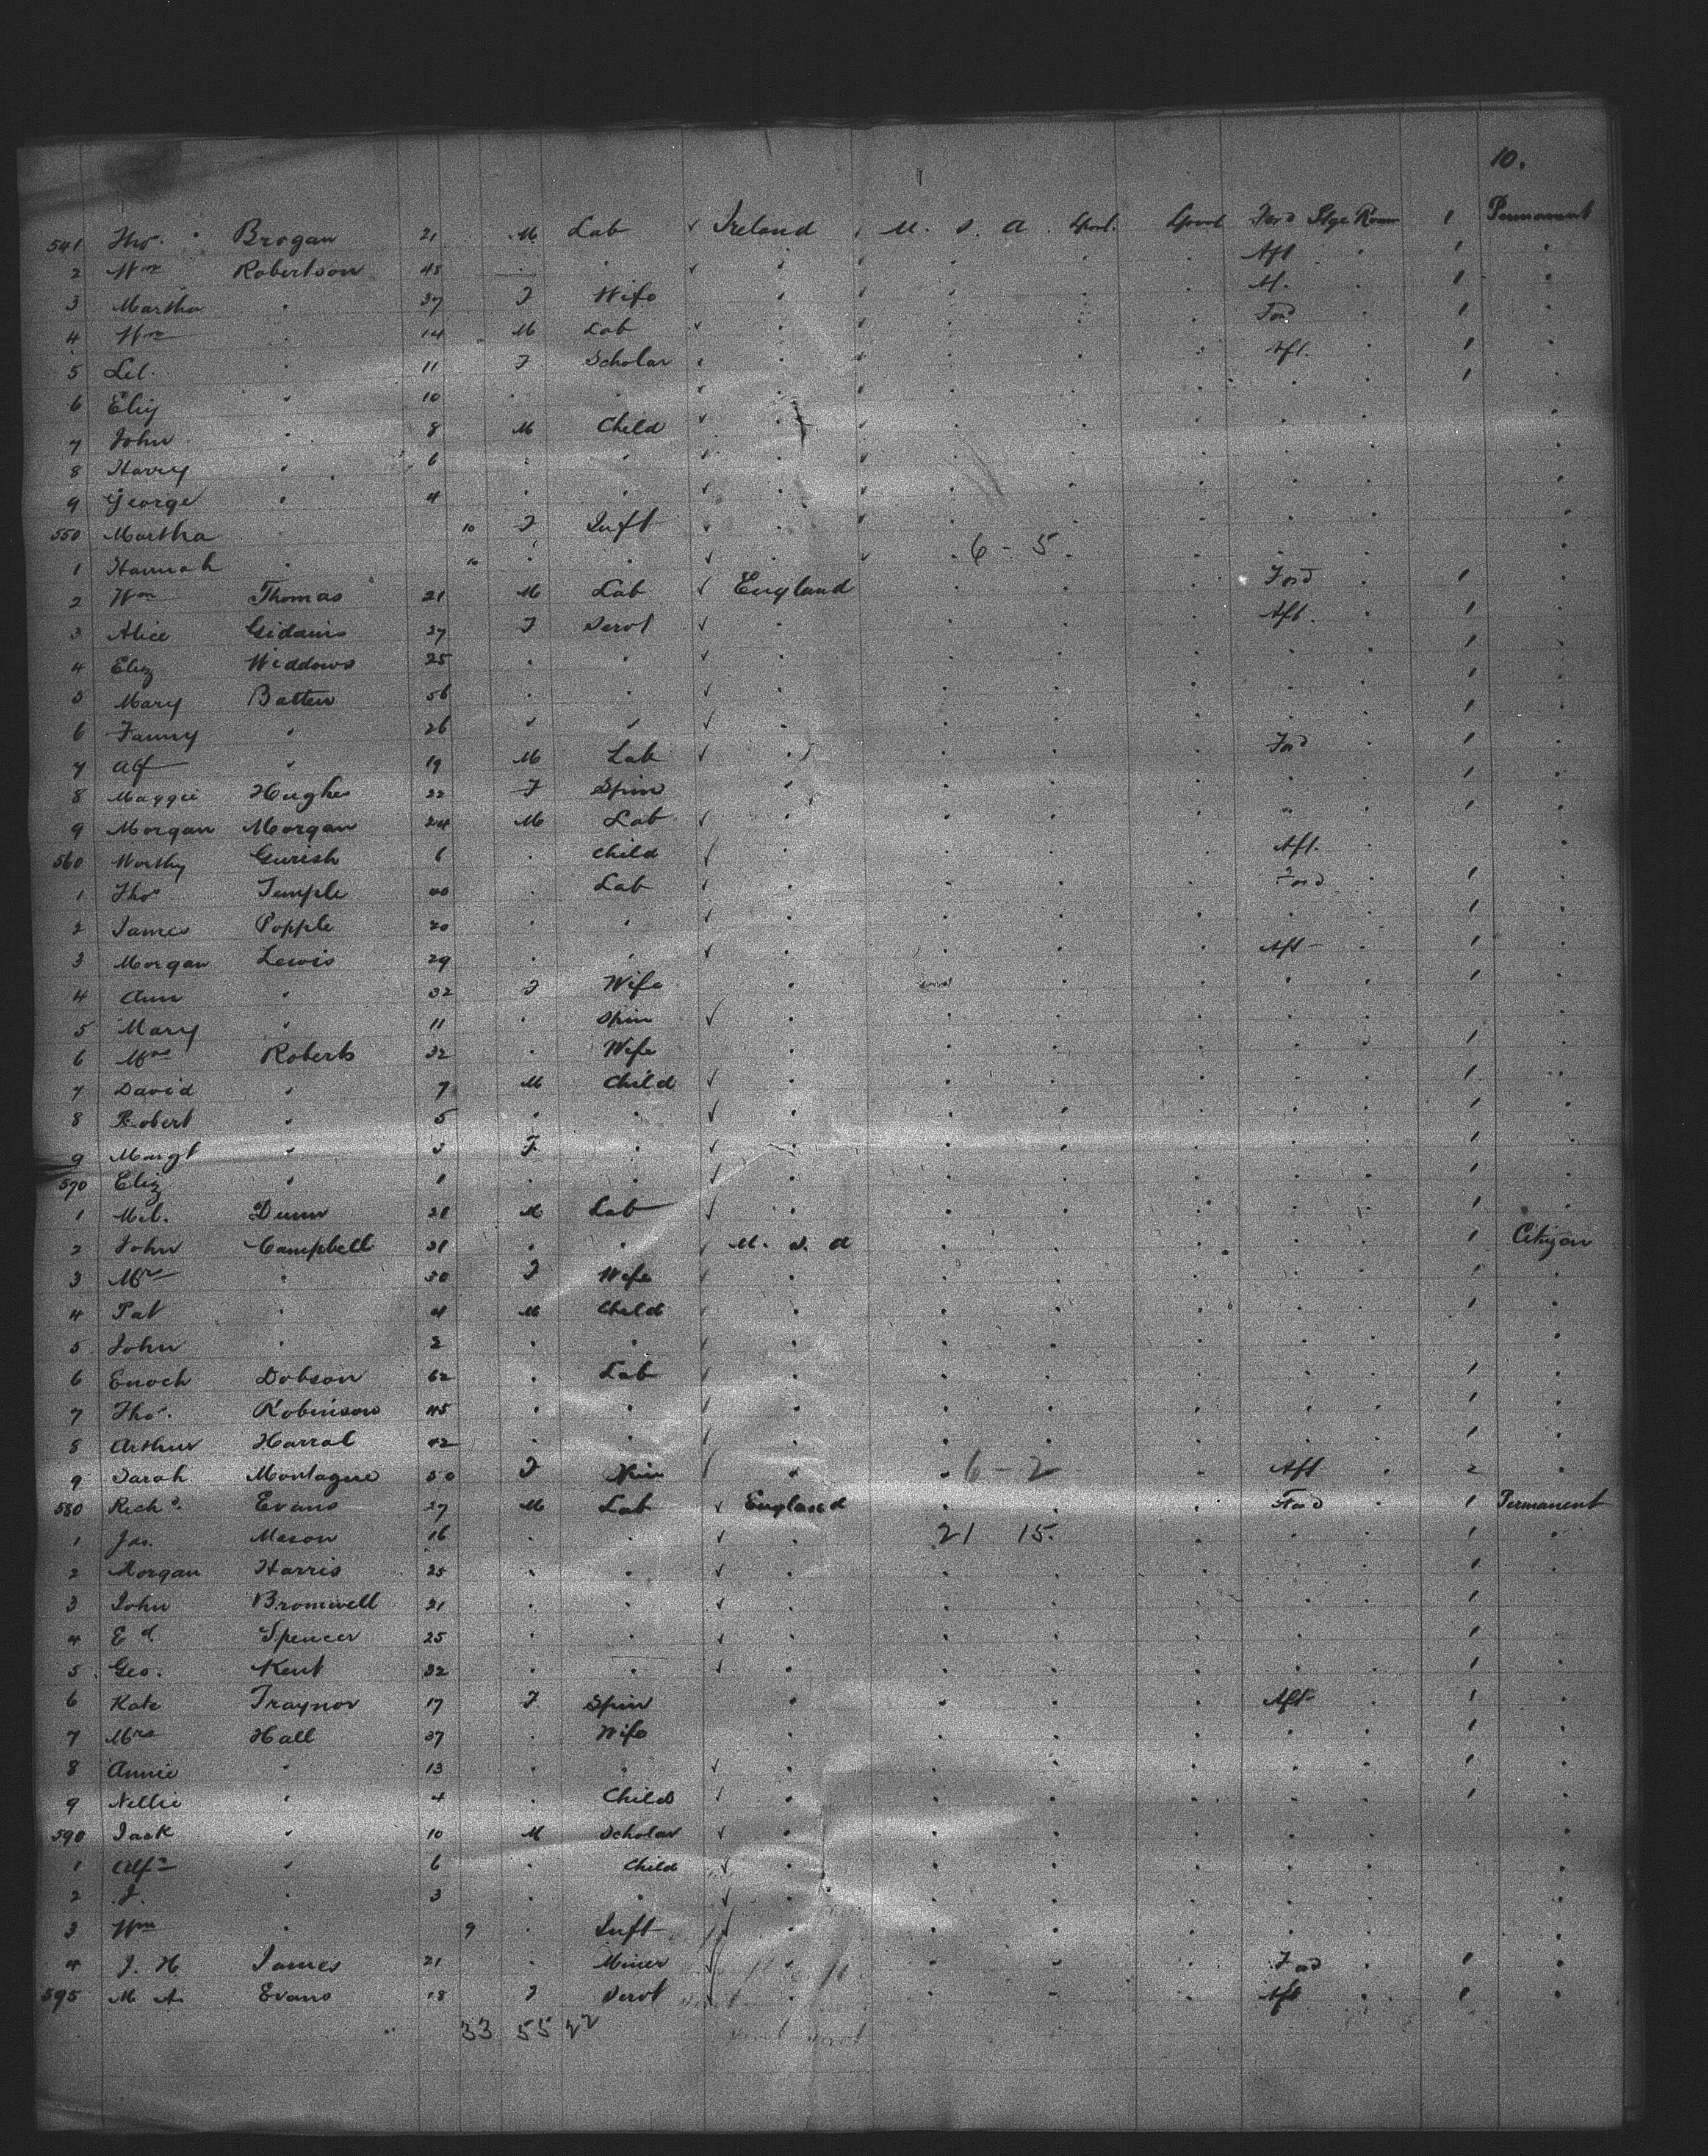 10.
541 Thos. Brogan 21 M Lab ✓ Ireland U. S. A. Lpool. Lpool Ford Stge Room 1 Permanent
2 Wm Robertson 45 " " Aft 1
3 Martha " 37 F Wife M. 1
4 Wm 14 M Lab Ford 1
5 Lil. " 11 F Scholar Aft. 1
6 Eliz " 10 1
7 John " 8 M Child
8 Harry " 6
9 George " 4
550 Martha 10 F Inft
1 Hannah " 10 6 - 5
2 Wm Thomas 21 M Lab England Ford 1
3 Alice 27 F Servt Aft. 1
4 Eliz Widdows 25 1
5 Mary Batten 56 1
6 Fanny " 26 1
7 Alf " 19 M Lab Ford 1
8 Maggie Hughes 22 F Spin 1
9 Morgan Morgan 24 M Lab " 1
560 Worthy Gurish 6 Child Aft.
1 Thos Temple 40 Lab Ford 1
2 James Popple 20 1
3 Morgan Lewis 29 Aft 1
4 Ann " 32 F Wife 1
5 Mary " 11 Spin
6 Mrs Roberts 32 Wife 1
7 David " 7 M Child 1
8 Robert " 5 1
9 Margt " 3 F 1
570 Eliz " 1 1
1 Ml. Dunn 21 M Lab 1
2 John Campbell 31 U. S. A 1 Citizen
3 Mrs " 30 F Wife 1
4 Pat " 4 M Child 1
5 John " 2
6 Enoch Dobson 62 Lab 1
7 Thos. Robinson 45 1
8 Arthur Harral 42 1
9 Sarah Montague 50 F Spin 6 - 2 Aft 2
580 Richd. Evans 27 M Lab England Ford 1 Permanent
1 Jas. Mason 16 21 15. 1
2 Morgan Harris 25 1
3 John Bromwell 21 1
4 Ed. Spencer 25 1
5 Geo. Kent 32 1
6 Kate Traynor 17 F Spin Aft 1
7 Mrs Hall 37 Wife 1
8 Annie " 13 1
9 Nellie " 4 Child 1
590 Jack " 10 M Scholar
1 Alfd " 6 Child
2 J. " 3
3 Wm " 9 Inft
4 J. H James 21 Miner Ford 1
595 M. A. Evans 18 F Servt Aft 1
33 55 22